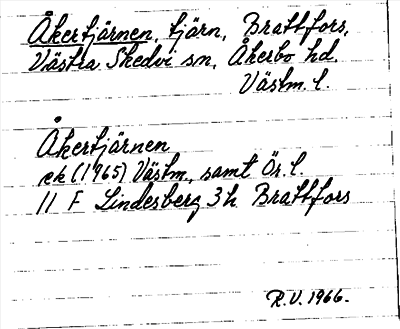 Åkertjärnen, tjärn, Brattfors,
Västra Skedvi sn, Åkerbo hd.
Västm. l.
Åkertjärnen
ek (1965) Västm., samt Ör. l.
11 F Lindesberg 3h Brattfors
R.V. 1966.